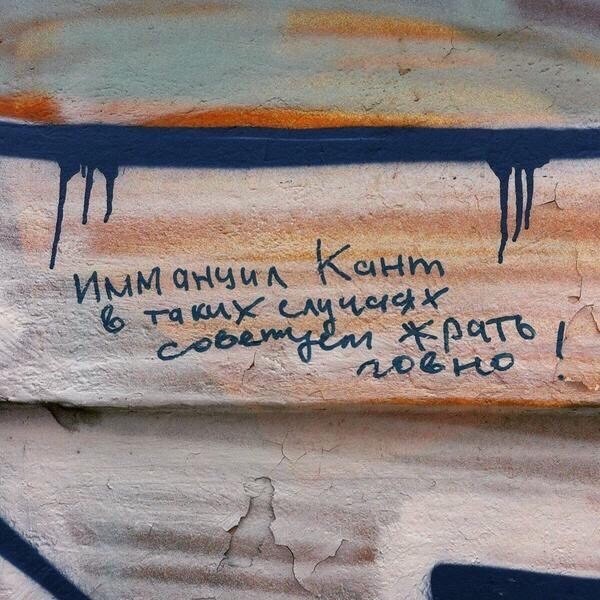 Иммануил Кант
в таких случаях
советует жрать
говно!